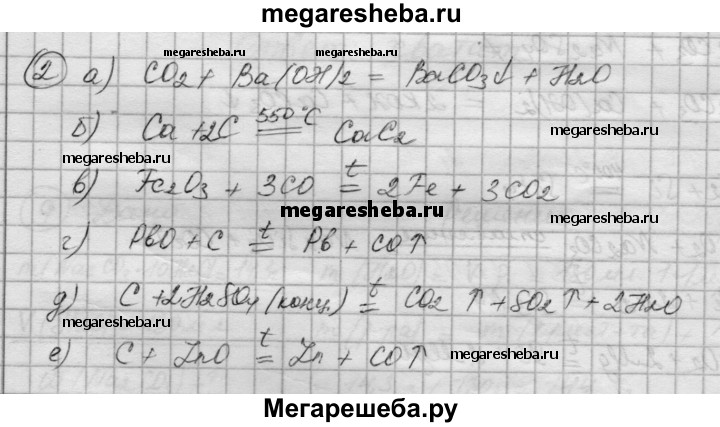 megaresheba.ru
megaresheba.ru megaresheba.ru
2 а) CO2 + Ba(OH)2 = BaCO3↓ + H2O
б) Ca + 2C 550°C = CaC2
megaresheba.ru megaresheba.ru
в) Fe2O3 + 3CO t = 2Fe + 3CO2
megaresheba.ru
г) PbO + C t = Pb + CO↑
д) C + 2H2SO4 (конц.) t = CO2↑ + SO2↑ + 2H2O
megaresheba.ru
е) C + ZnO t = Zn + CO↑ megaresheba.ru
Мегарешеба.ру